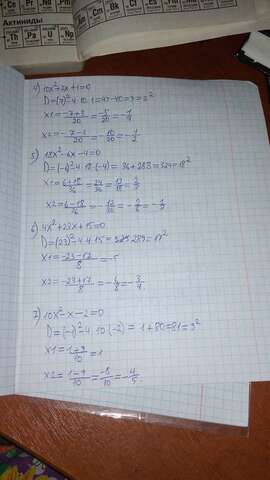 Актиниды
Th
Pa
U
Np
Cm
Bk
Cf
4) 10x²+7x+1=0
D=(7)²-4·10·1=49-40=9=3²
x1=(-7+3)/20=-5/20=-1/4
x2=(-7-3)/20=-10/20=-1/2
5) 18x²-6x-4=0
D=(-6)²-4·18·(-4)=36+288=324=18²
x1=(6+18)/36=24/36=12/18=2/3
x2=(6-18)/36=-12/36=-2/6=-1/3
6) 4x²+23x+15=0
D=(23)²-4·4·15=529-289=17²
x1=(-23-17)/8=-5
x2=(-23+17)/8=-6/8=-3/4
7) 10x²-x-2=0
D=(-1)²-4·10·(-2)=1+80=81=9²
x1=(1-9)/10=1
x2=(1-9)/10=-8/10=-4/5